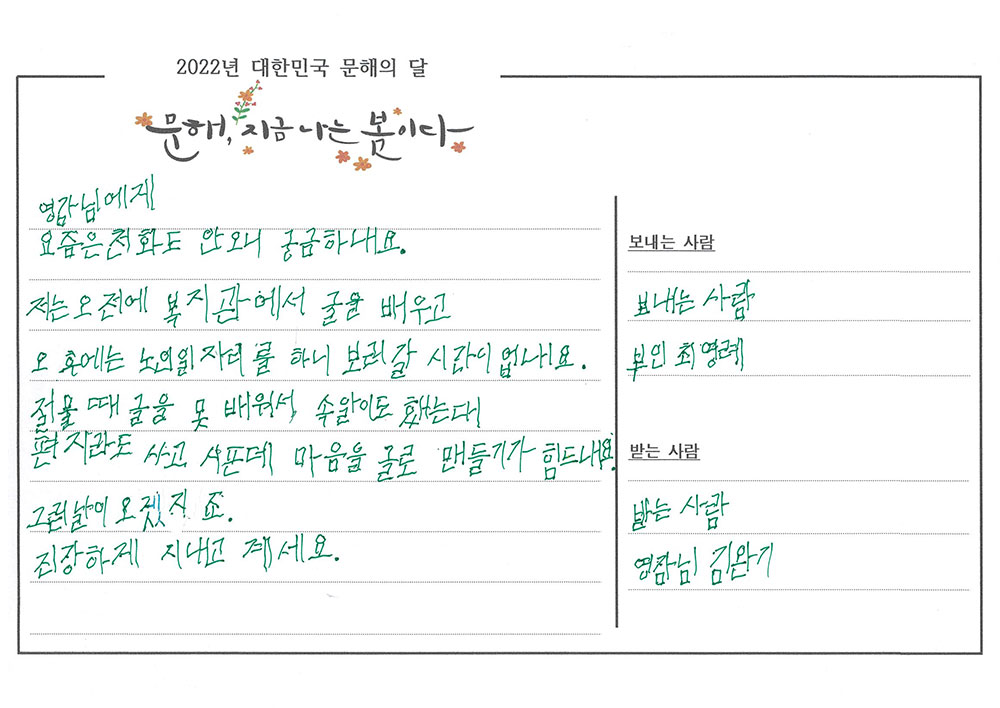 2022년 대한민국 문해의 달
문해, 지금 나는 봄이다
영감님에게
요즘은 전화도 안오니 궁금하내요.
저는 오전에 복지관에서 글을 배우고
오후에는 노인일자리를 하니 보러갈 시간이 없내요.
젊을 때 글을 못 배워서 속알이도 했는대
편지라도 사고 시픈데 마음을 글로 맨들기가 힘드내요.
그런날이 오겠지 죠.
긴장하게 지내고 계세요.
보내는 사람
보내는 사람
부인 최영례
받는 사람
받는 사람
영감님 김완기